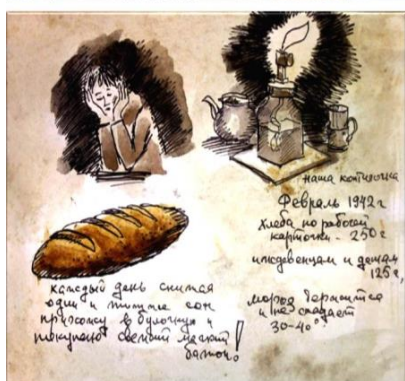 наша коптилочка
Февраль 1942 г
Хлеба по рабочей
карточке - 250 г
иждевенцам и детям
125 г,
мороз держится
и не спадает
30-40°
каждый день снится
один и тот же сон
прихожу в булочную и
покупаю свежий мягкий
батон!